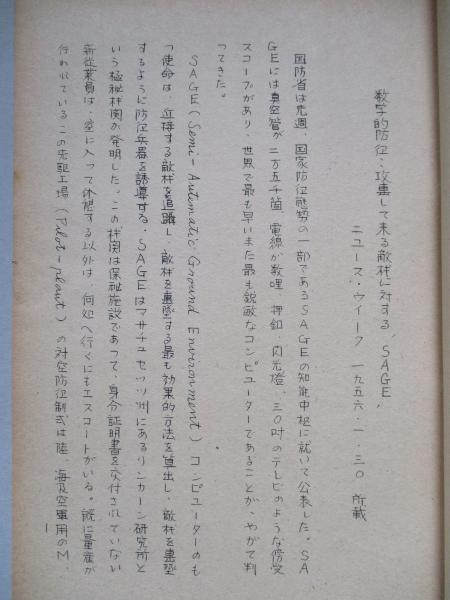 数学的防征：攻轟して来る敵桟に対する、SAGE、
ニユース・ウイーク 一九五六・一・三〇 所載
国防省は先週、国家防征態勢の一部であるSAGEの知能中枢に就いて公表した。SA
GEには真空管が二万五千箇、電線が数哩、押釦、閃光燈、三〇吋のテレビのような傍受
スコープがあり、世界で最も早いまた最も鋭敏なコンピューターであることが、やがて判
ってきた。
SAGE（Semi-Automatic Ground Environment）コンピューターのも
つ使命は、近接する敵桟を追躡し、敵桟を轟墜する最も効果的方法を算出し、敵桟を轟墜
するように防征兵器を誘導する。SAGEはマサチュセッツ州にあるリンカーン研究所と
いう極祕桟関が発明した。この桟関は保祕施設であって、身分証明書を交付されていない
新従業員は、室に入って休憩する以外は、何処へ行くにもエスコートがいる。既に量産が
行われているこの先駆工場（Pilot-plant）の対空防征制式は陸、海及空軍用のM
1